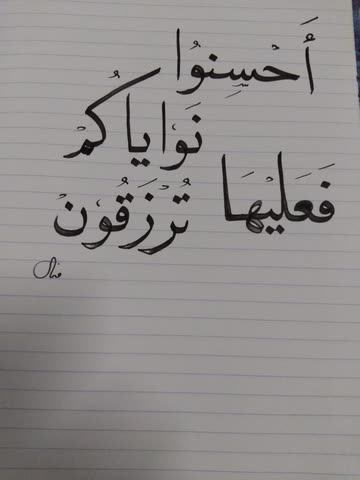 أَحْسِنوُا
نَوْاياكُمْ
فَعَلَيْهَا تُرْزَقُوْنْ